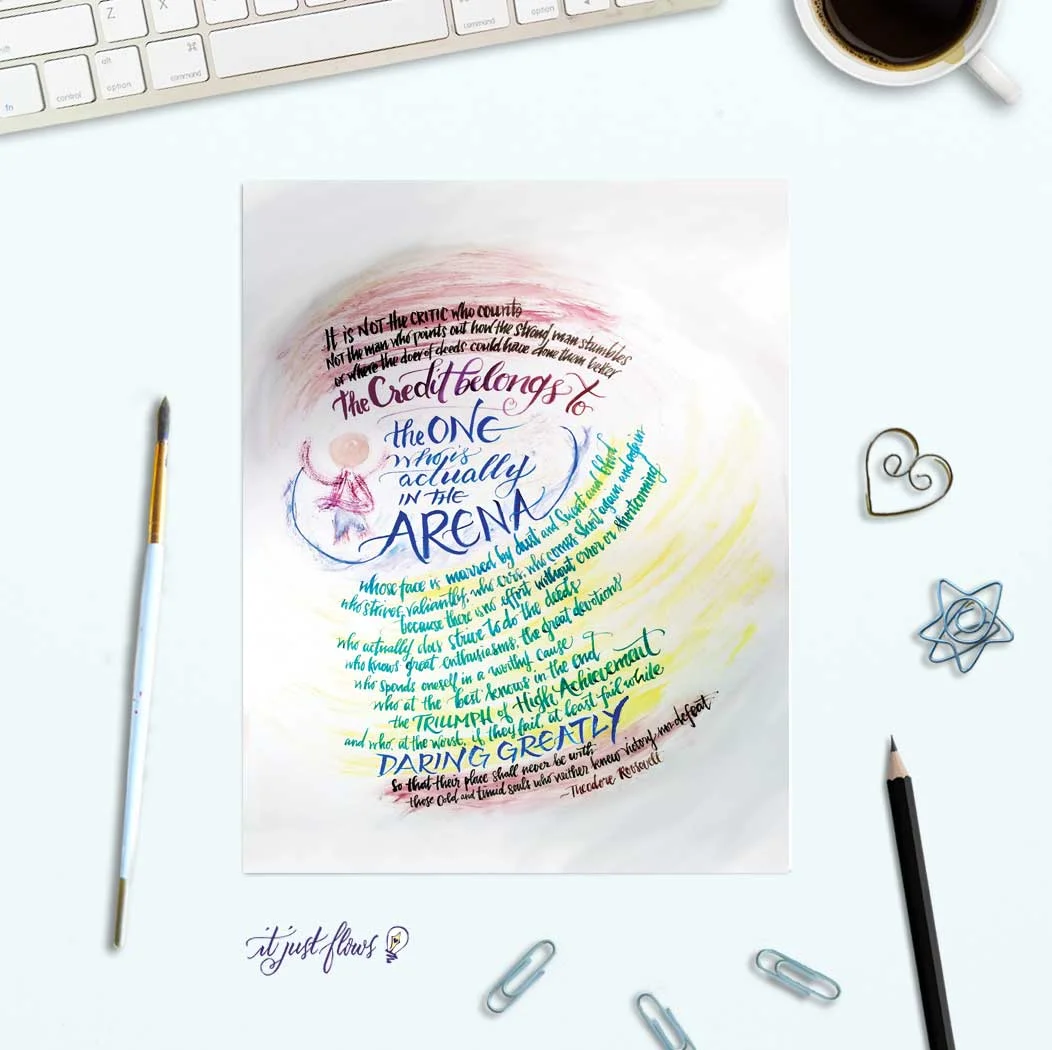 Z
X
command
option
alt
option
⌘
command
control
fn
It is NOT the CRITIC who counts
Not the man who points out how the strong man stumbles
or where the doer of deeds could have done them better
the Credit belongs to
the ONE
who is
actually
IN THE
ARENA
whose face is marred by dust and sweat and blood
who strives valiantly, who errs, who comes short again and again
because there is no effort without error or shortcoming
who actually does strive to do the deeds
who knows great enthusiasms, the great devotions
who spends oneself in a worthy cause
who at the best knows in the end
the TRIUMPH of High Achievement
and who, at the worst, if they fail, at least fail while
DARING GREATLY
So that their place shall never be with
those cold and timid souls who neither knew victory nor defeat
~Theodore Roosevelt
it just flows